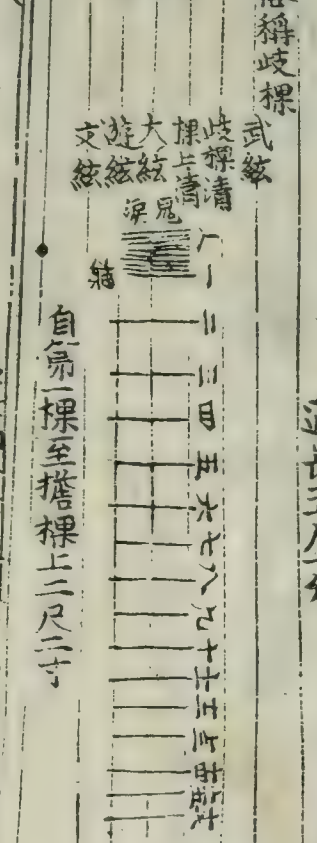 稱歧棵
武絃
歧棵淸
棵上淸
大絃
遊絃
文絃
一
二
三
四
五
六
七
八
九
十
十一
十二
十三
十四
十五
十六
自第一棵至擔棵上二尺二寸